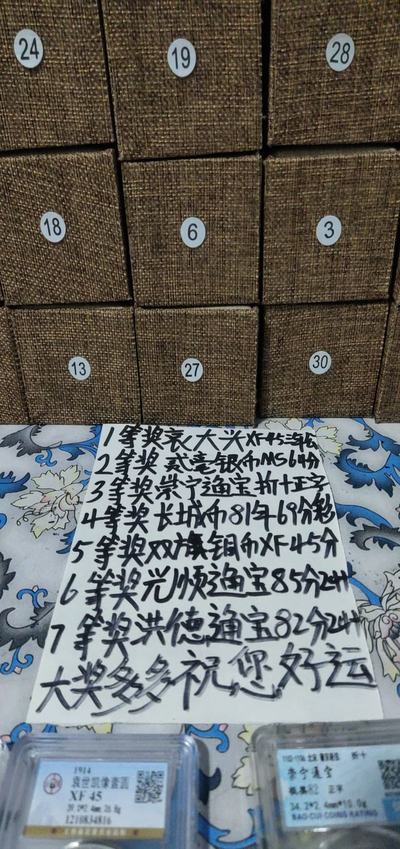 24
19
28
18
6
3
13
27
30
1等奖袁大头XF45
2等奖贰毫银币MS64分
3等奖崇宁通宝折十正字
4等奖长城币81年69分彩
5等奖双旗铜币XF45分
6等奖光顺通宝85分24
7等奖洪德通宝82分24
大奖多多祝您好运
1914
袁世凯像壹圆
XF 45
39.1*2.4mm 26.8g
1210834816
折十
崇宁通宝
极美82 正字
34.2*2.4mm*10.0g
BAO CUI COINS RATING